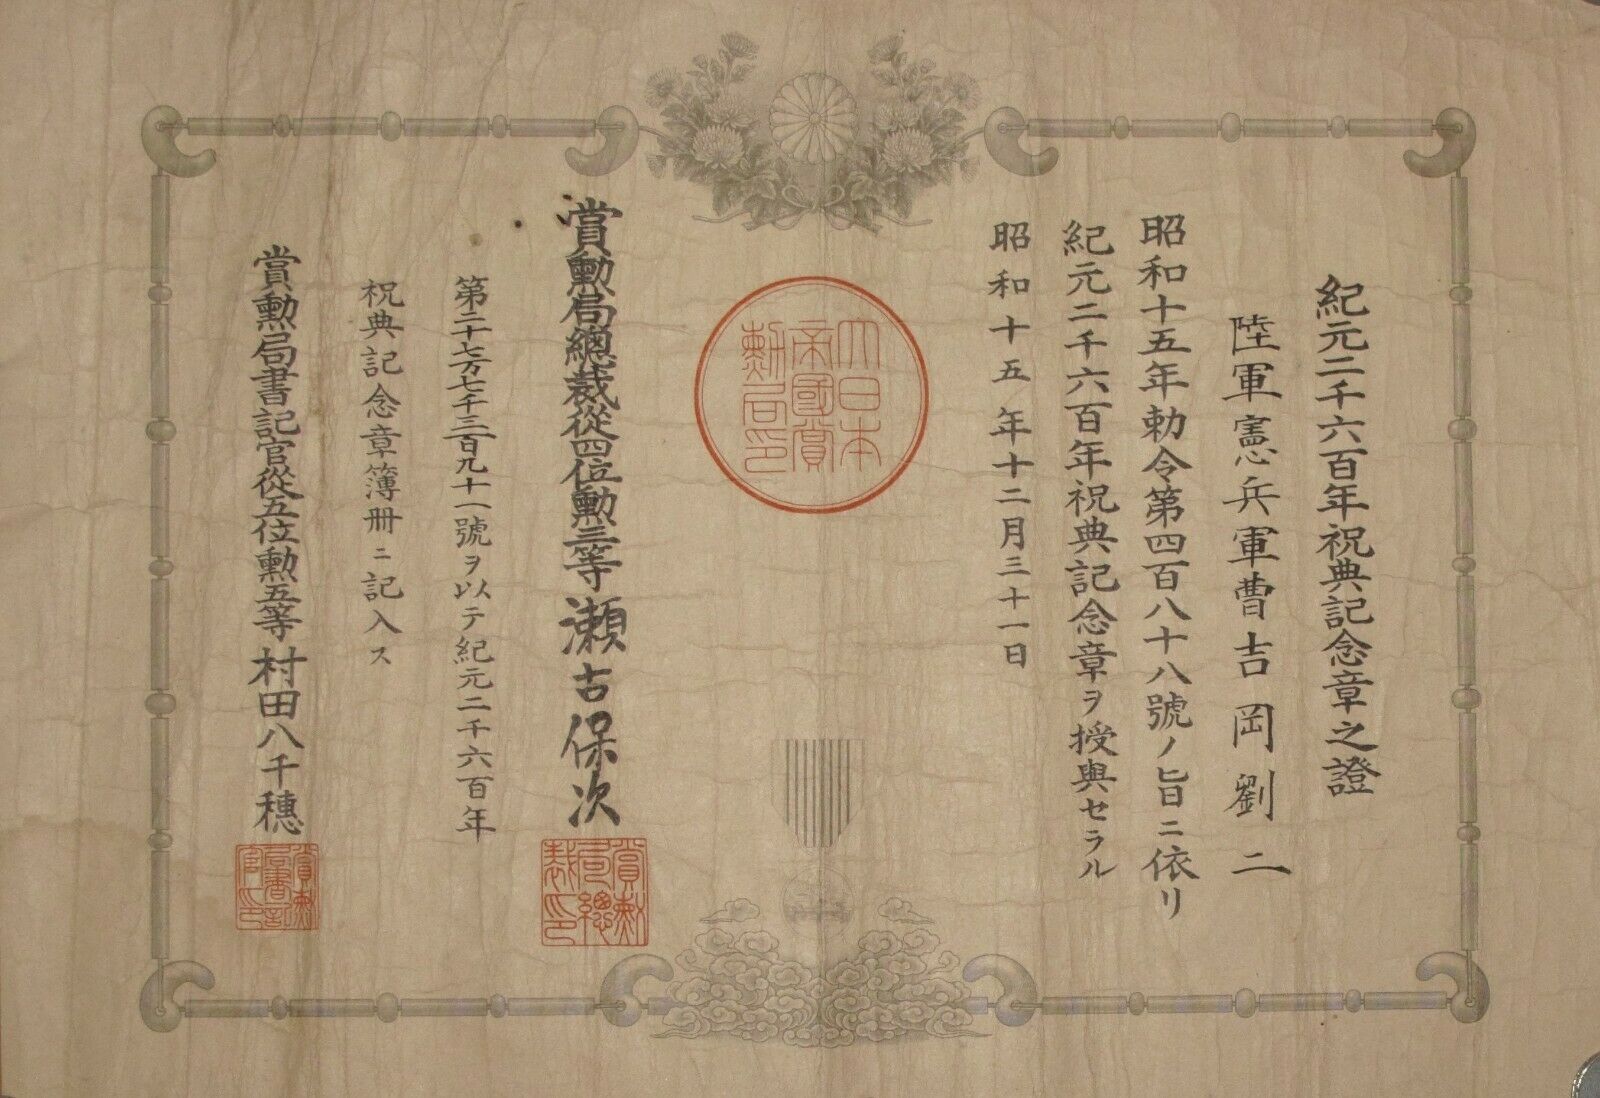 紀元二千六百年祝典記念章之證
陸軍憲兵軍曹吉岡劉二
昭和十五年勅令第四百八十八號ノ旨ニ依リ
紀元二千六百年祝典記念章ヲ授與セラル
昭和十五年十二月三十一日
大日本
帝國賞
勲局印
賞勲局總裁從四位勲三等瀬古保次
賞勲
局總
裁印
第二十七万七千三百九十一號ヲ以テ紀元二千六百年
祝典記念章簿册ニ記入ス
賞勲局書記官從五位勲五等村田八千穗
賞勲
局書記
官印